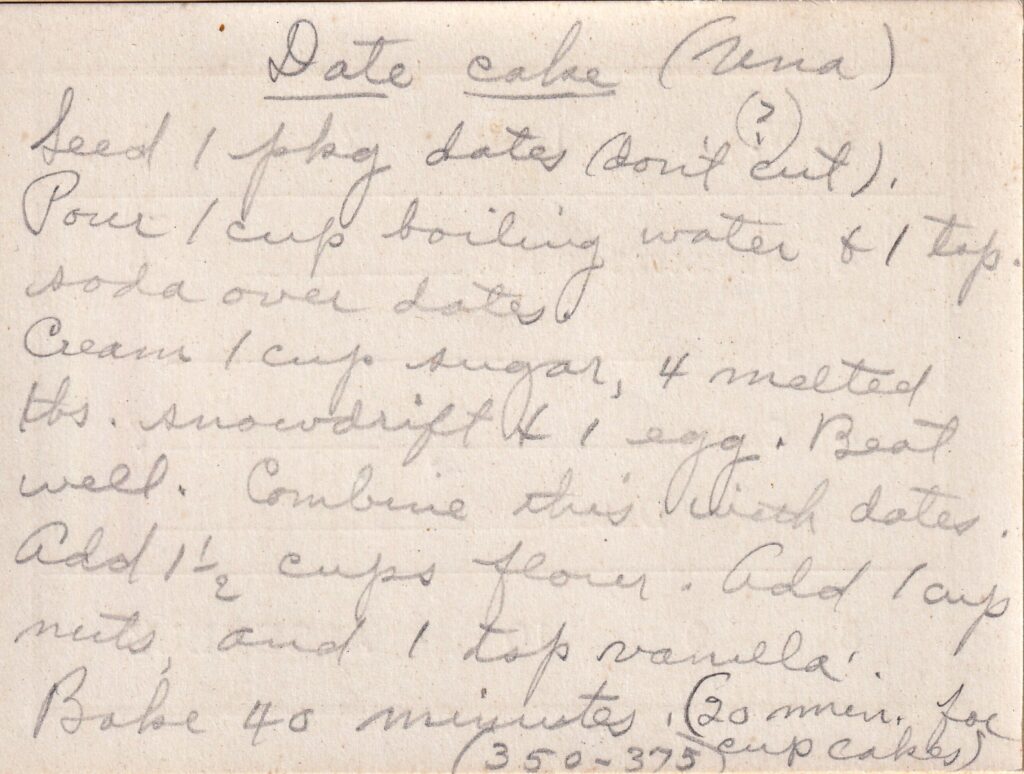 Date cake (Una)
(?)
Seed 1 pkg dates (don't cut).
Pour 1 cup boiling water & 1 tsp.
soda over dates.
Cream 1 cup sugar, 4 melted
tbs. snowdrift & 1 egg. Beat
well. Combine this with dates.
Add 1½ cups flour. Add 1 cup
nuts, and 1 tsp vanilla.
Bake 40 minutes. (20 min. for
cup cakes)
(350-375)